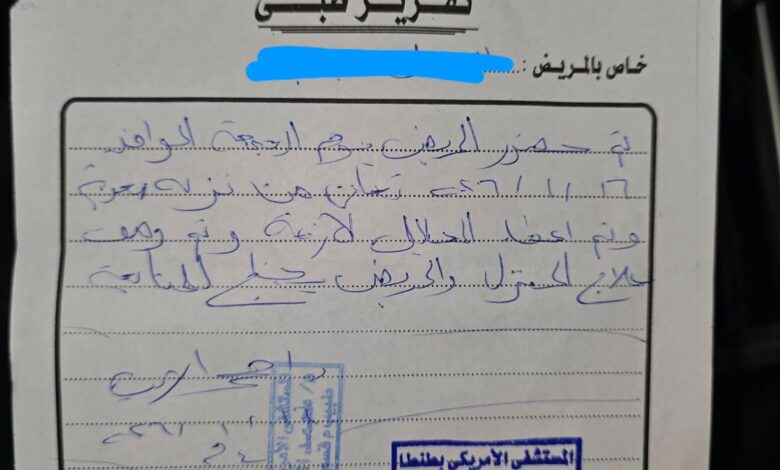 تقرير طبى
خاص بالمريض :
تم حضور المريض يوم الجمعة الموافق
١٦ / ١ / ٢٠٢٦ تعانى من نزله معوية
وتم اعطاء المحاليل لازمة وتم وصف
علاج المنزل والمريض يحتاج المتابعة
المستشفى الأمريكى بطنطا